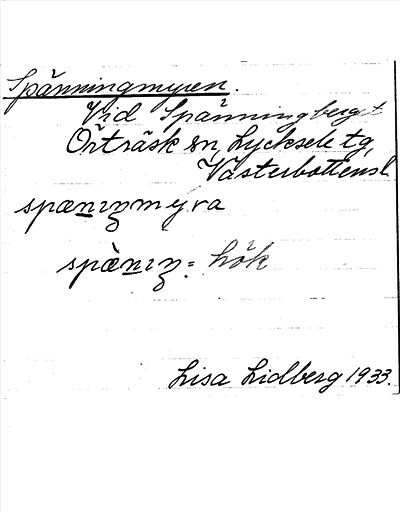 Spänningmyren.
Vid Spänningberget
Örträsk sn, Lycksele tg,
Västerbottensl.
spænıŋmyra
spæ̀nıŋ = hök
Lisa Lidberg 1933.